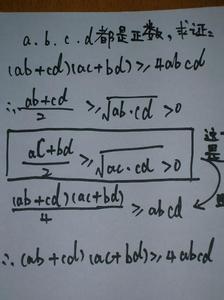 a.b.c.d都是正数,求证:
(ab+cd)(ac+bd)≥4abcd
∴ (ab+cd)/2 ≥ √(ab·cd) >0
(ac+bd)/2 ≥ √(ac·cd >0)
这是
(ab+cd)(ac+bd)/4 ≥ abcd
∴(ab+cd)(ac+bd)≥4abcd